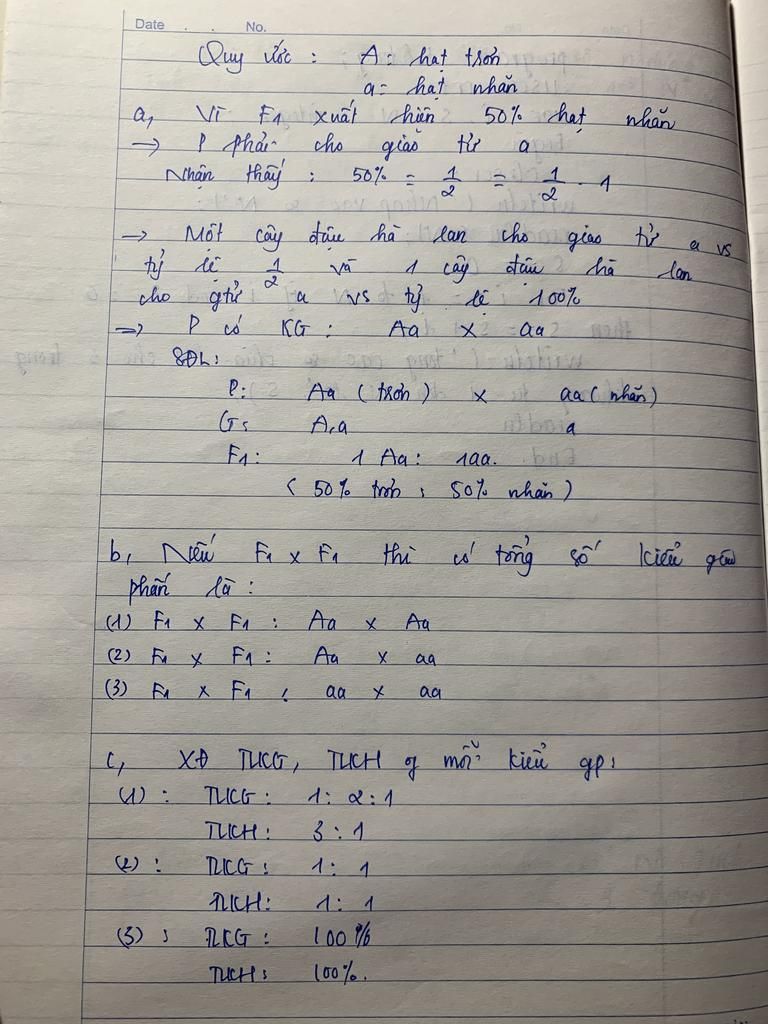 Date . . No.
Quy ước : A = hạt trơn
a = hạt nhăn
a, Vì F1 xuất hiện 50% hạt nhăn
→ P phải cho giao tử a
Nhận thấy : 50% = 1/2 = 1/2 . 1
→ Một cây đậu hà lan cho giao tử a vs
tỷ lệ 1/2 và 1 cây đậu hà lan
cho gtử a vs tỷ lệ 100%
=> P có KG : Aa x aa
SĐL:
P: Aa ( trơn ) x aa ( nhăn )
G: A,a a
F1: 1 Aa : 1aa.
( 50% trơn ; 50% nhăn )
b, Nếu F1 x F1 thì có tổng số kiểu giao
phấn là :
(1) F1 x F1 : Aa x Aa
(2) F1 x F1 : Aa x aa
(3) F1 x F1 : aa x aa
c, XĐ TLKG, TLKH of mỗi kiểu gp:
(1) : TLKG : 1 : 2 : 1
TLKH : 3 : 1
(2) : TLKG : 1 : 1
TLKH : 1 : 1
(3) : TLKG : 100%
TLKH : 100%.